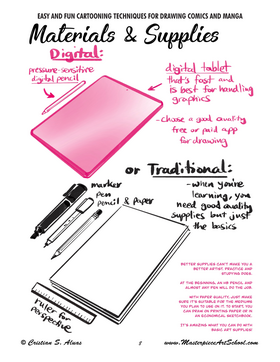 EASY AND FUN CARTOONING TECHNIQUES FOR DRAWING COMICS AND MANGA
Materials & Supplies
Digital:
pressure-sensitive
digital pencil
digital tablet
that's fast and
is best for handling
graphics
-choose a good quality
free or paid app
for drawing
or Traditional:
marker
pen
pencil & paper
-when you're
learning, you
need good quality
supplies but just
the basics
ruler for
perspective
BETTER SUPPLIES CAN'T MAKE YOU A
BETTER ARTIST. PRACTICE AND
STUDYING DOES.
AT THE BEGINNING, AN HB PENCIL AND
ALMOST ANY PEN WILL DO THE JOB.
WITH PAPER QUALITY, JUST MAKE
SURE IT'S SUITABLE FOR THE MEDIUMS
YOU PLAN TO USE ON IT. TO START, YOU
CAN DRAW ON PRINTING PAPER OR IN
AN ECONOMICAL SKETCHBOOK.
IT'S AMAZING WHAT YOU CAN DO WITH
BASIC ART SUPPLIES!
© Cristian S. Aluas
www.MasterpieceArtSchool.com